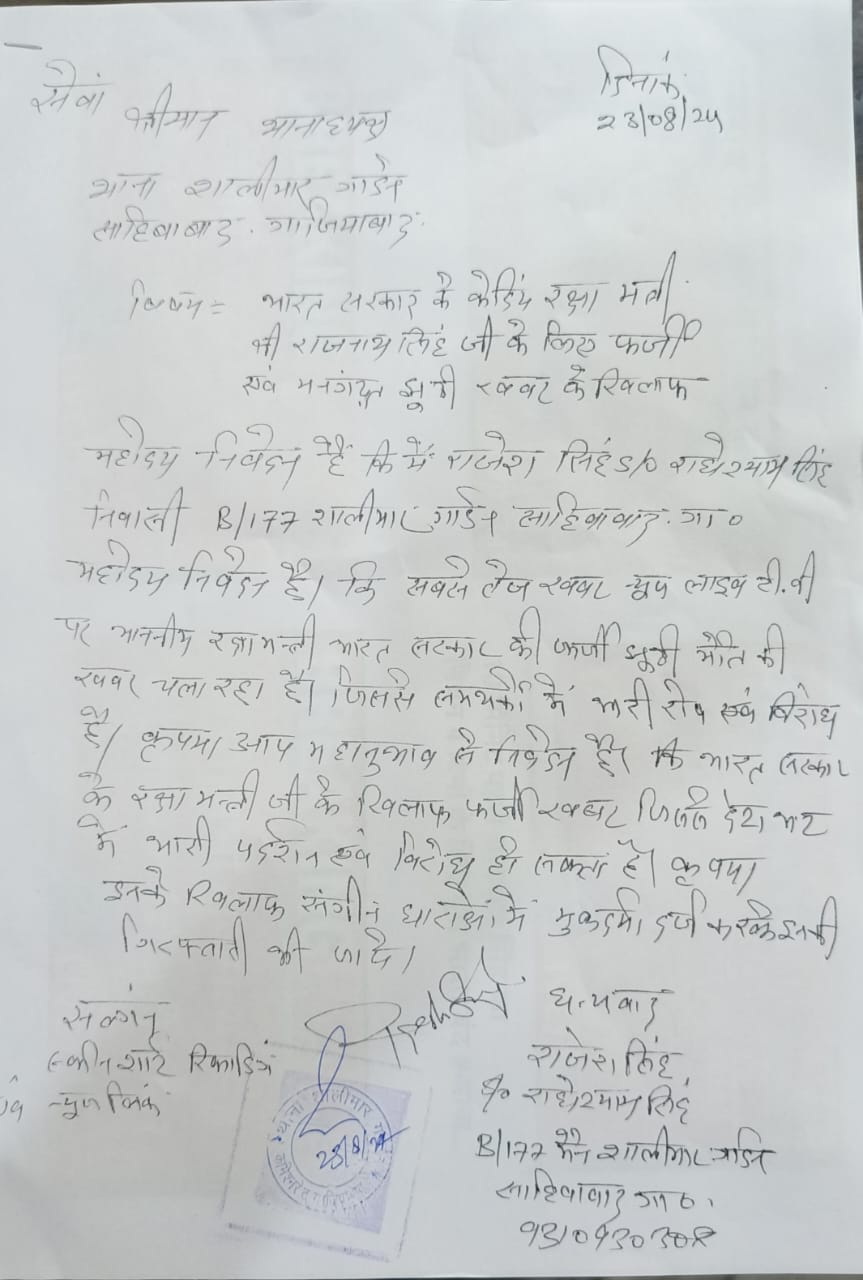 सेवा
दिनांक
23/08/24
श्रीमान थानाध्यक्ष
थाना शालीमार गार्डन
साहिबाबाद. गाजियाबाद.
विषय = भारत सरकार के केंद्रिय रक्षा मंत्री
श्री राजनाथ सिंह जी के लिए फर्जी
एवं मनगंढ़त झूठी खबर के खिलाफ
महोदय निवेदन है कि मैं राजेश सिंह S/o राधेश्याम सिंह
निवासी B/177 शालीमार गार्डन साहिबाबाद. गा०
महोदय निवेदन है। कि सबसे तेज खबर न्यूज लाइव टी.वी
पर माननीय रक्षा मन्त्री भारत सरकार की फर्जी झूठी मौत की
खबर चला रहा है। जिससे समर्थकों में भारी रोष एवं विरोध
है। कृपया आप महानुभाव से निवेदन है। कि भारत सरकार
के रक्षा मन्त्री जी के खिलाफ फर्जी खबर जिससे देश भर
में भारी पर्दशन एवं विरोध हो सकता है। कृपया
इनके खिलाफ संगीन धाराओं में मुकदमा दर्ज करके इनकी
गिरफ्तारी की जाये।
सलंग्न
स्क्रीन शाट रिकार्डिंग
न्यूज लिंक
धन्यवाद
राजेश सिंह
S/o राधेश्याम सिंह
B/177 मैन शालीमार गार्डन
साहिबाबाद गा०.
थाना शालीमार
23/8/24